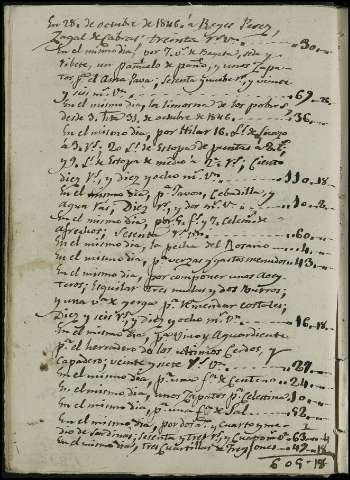 En 28. de octubre de 1846. á Reyes Perez,
Zagal de Cabras treinta r.s v.n 30.
En el mismo dia, por 7. v.s de Bayeta, seda, y
ribete, un pañuelo de paño, y unos Zapa-
tos p.a el Ama, sesenta y nueve r.s, y veinte
y seis m.s v.n 69. 26.
En el mismo dia, la limosna de los pobres
desde 3. hta 31. de octubre de 1846. 36.
En el mismo dia, por Hilar 16. L.s de
á 3. r.s 20. L.s de Estopa de
y 9. L.s de Estopa de medio á 2. r.s; Ciento
diez r.s, y diez y ocho m.s v.n 110. 18.
En el mismo dia, p.r Jabon, Cebadilla, y
Agua Ras, Diez r.s, y dos m.s v.n 10. 2.
En el mismo dia, por 5. f.s y 7. Celemines de
Afrechos; Sesenta r.s v.n 60.
En el mismo dia, la pecha del Rosario 4.
En el mismo dia, p.r verzas y gastos menudos 43.
En el mismo dia, por componer unos Acey-
teros; Esquilar tres mulas y dos Burros;
y una v.a de gerga p.a remendar costales;
Diez y seis r.s, y diez y ocho m.s v.n 16. 18.
En el mismo dia, p.r Vino y Aguardiente
p.a el herradero de los Añinos Cerdos, y
Capadero; veinte y siete r.s v.n 27.
En el mismo dia, p.r una f.a de Centeno 24.
En el mismo dia, unos Zapatos p.a Celestina 10.
En el mismo dia, p.r una f.a de Sal 52.
En el mismo dia, por dos a.s, Cuarto y me-
dio de Sardinas; sesenta y tres r.s, y Cuatro m.s v.n 63. 4
En el mismo dia, tres Cuartillos de 47. 18
609. 18